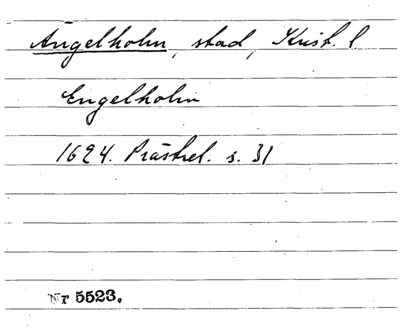 Ängelholm, stad, Krist. l.
Engelholm
1624. Prästrel. s. 31
Nr 5523.